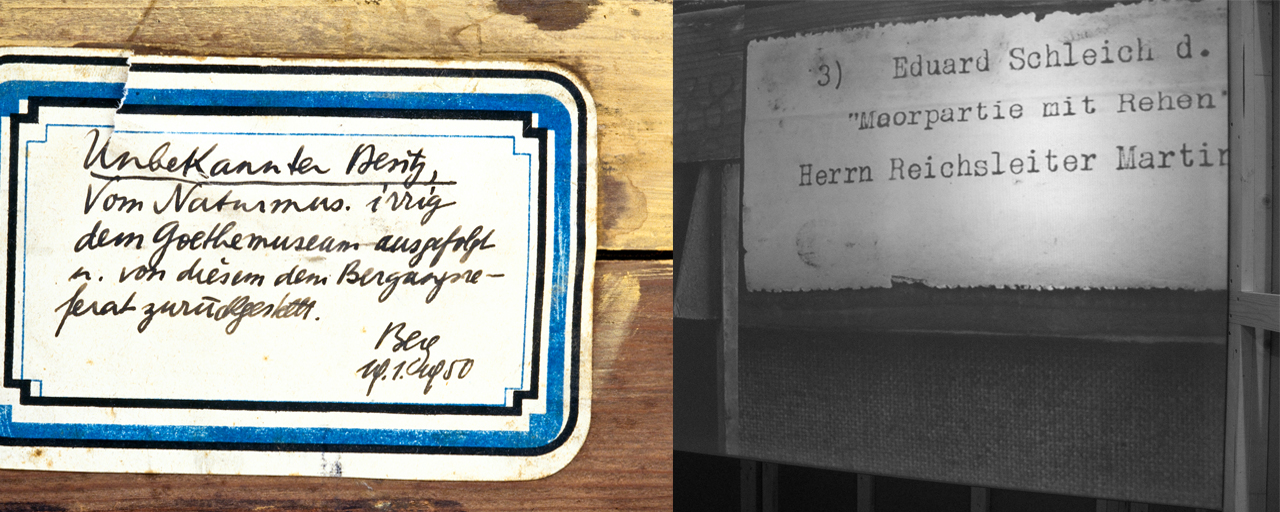 Unbekannter Besitz,
Vom Naturmus. irrig
dem Goethemuseum ausgefolgt
u. von diesem dem Bergungsre-
ferat zurückgestellt.
Berg
19.1.1950
3) Eduard Schleich d.
"Moorpartie mit Rehen"
Herrn Reichsleiter Martin